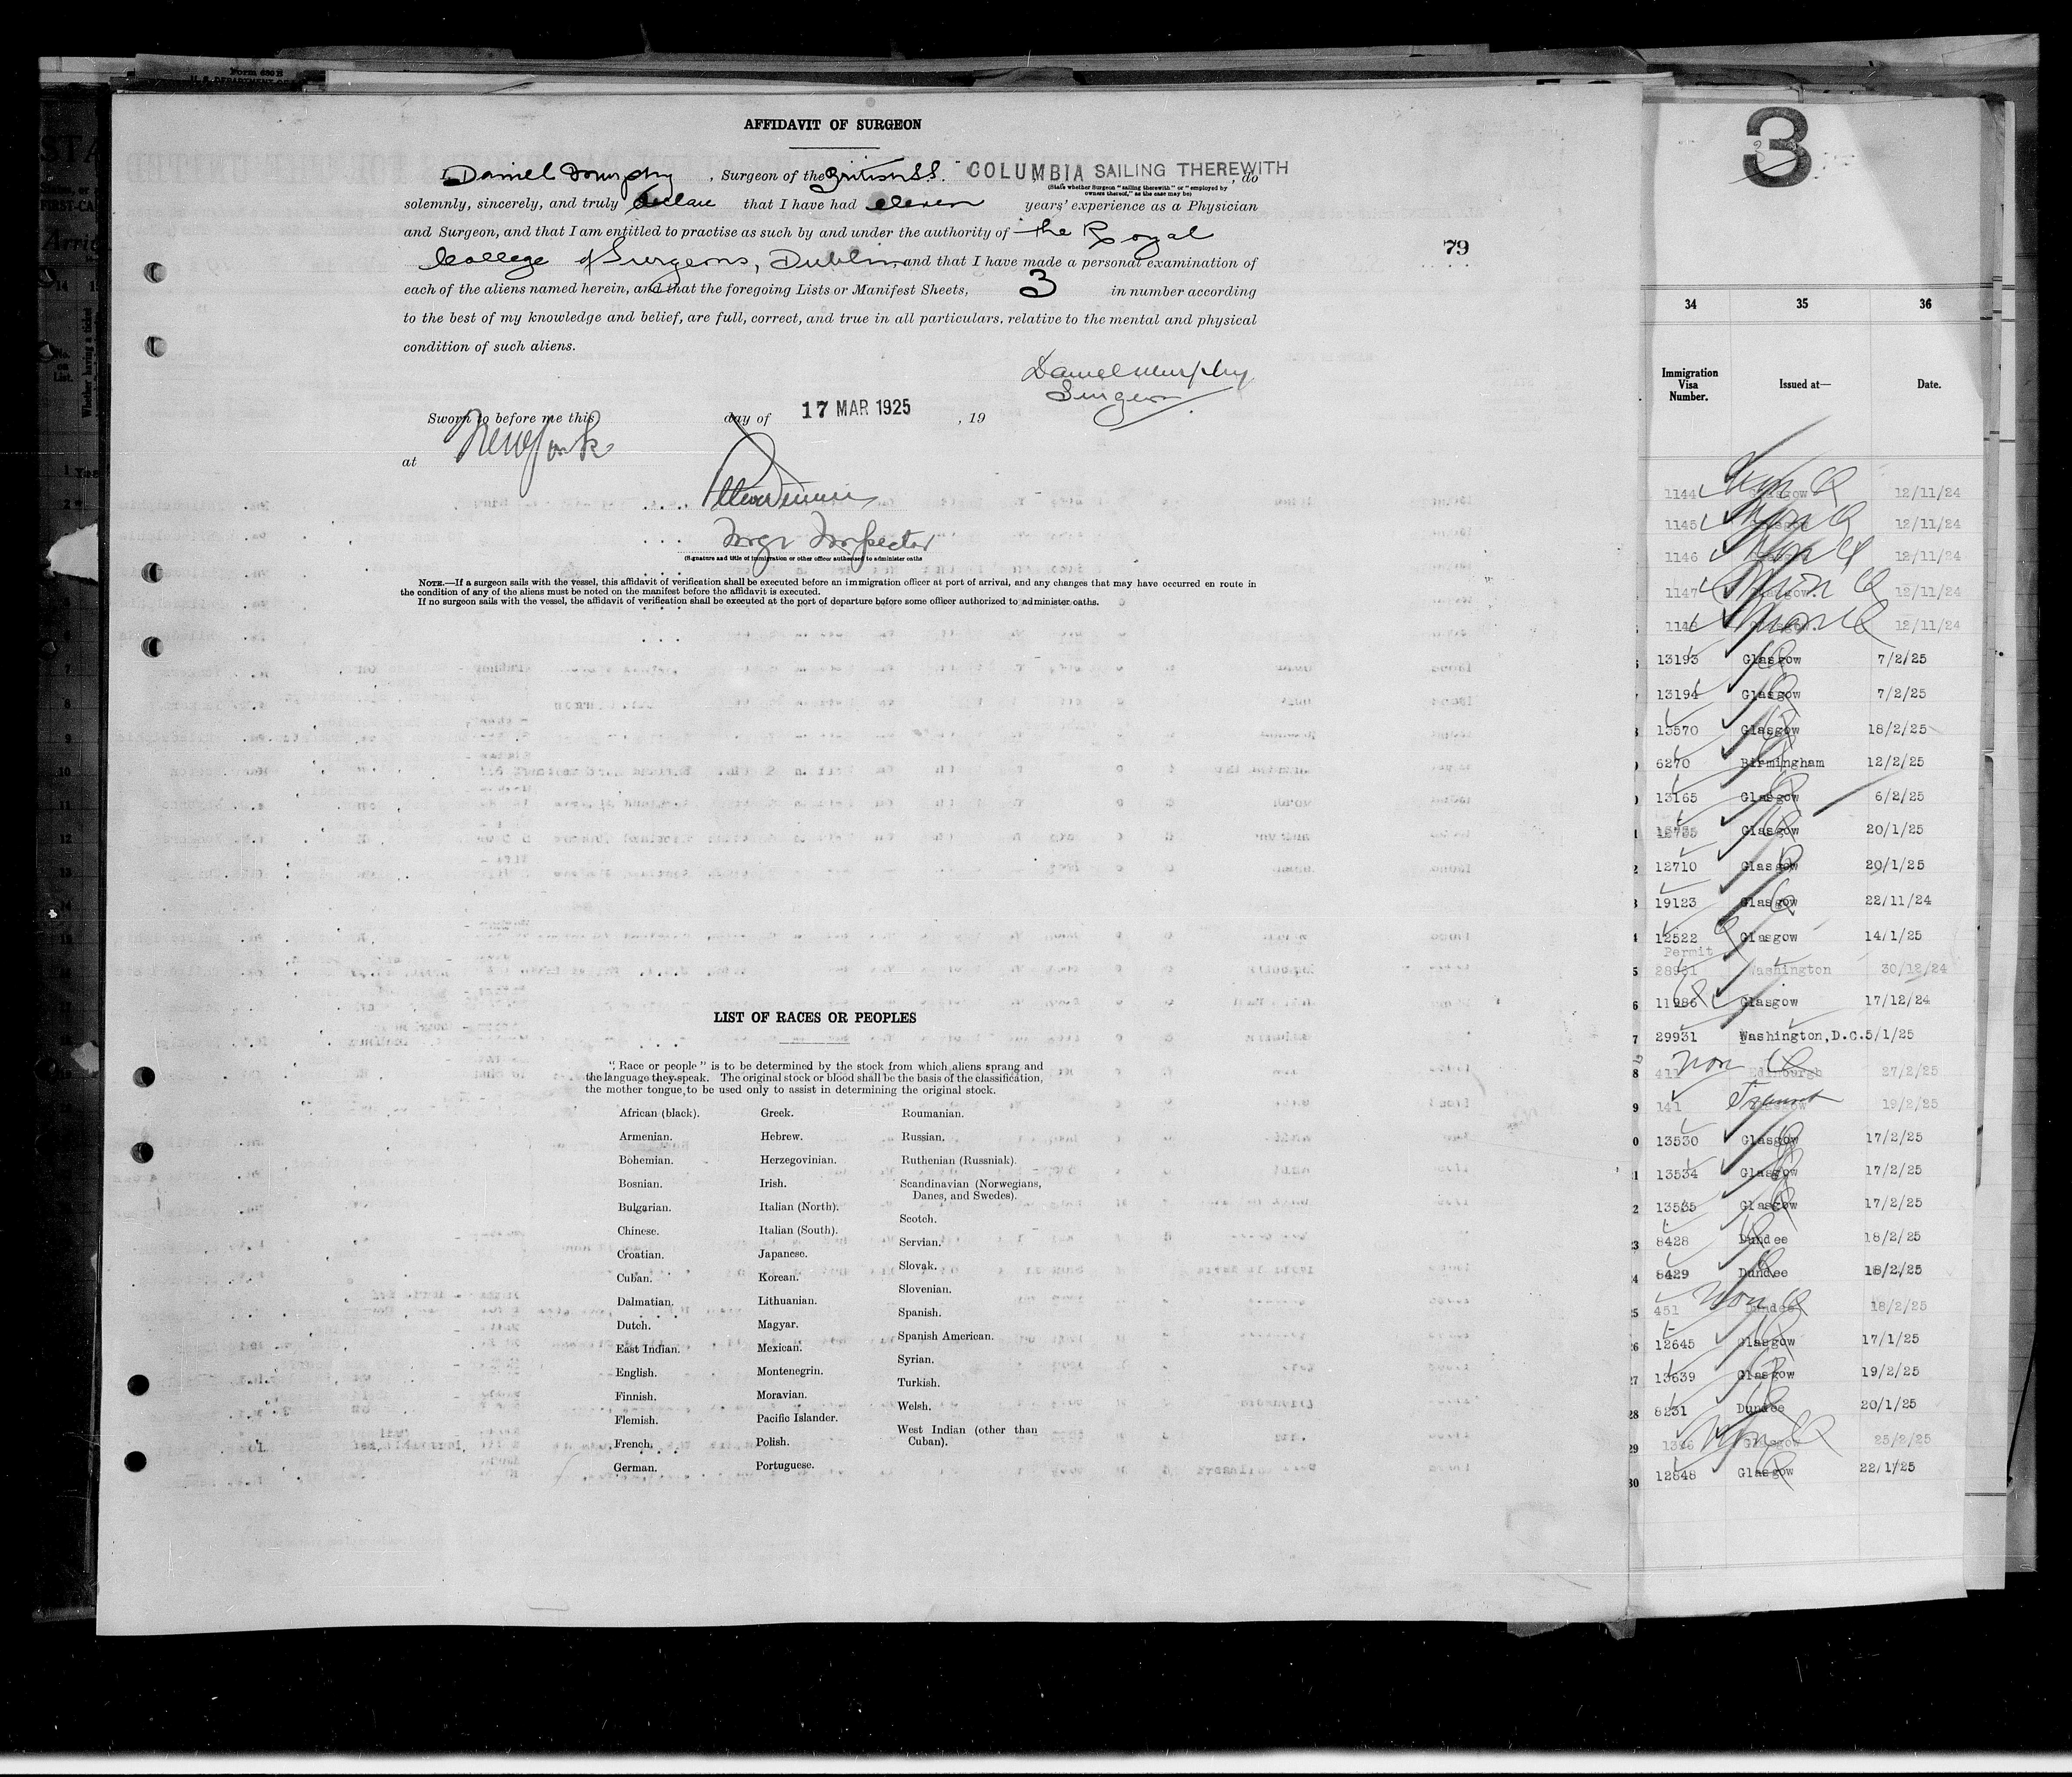 Form 630 B
AFFIDAVIT OF SURGEON
I, Daniel Murphy, Surgeon of the British S.S. COLUMBIA SAILING THEREWITH, do
(State whether Surgeon "sailing therewith" or "employed by owners thereof," as the case may be)
solemnly, sincerely, and truly declare that I have had eleven years' experience as a Physician
and Surgeon, and that I am entitled to practise as such by and under the authority of the Royal
College of Surgeons, Dublin, and that I have made a personal examination of
each of the aliens named herein, and that the foregoing Lists or Manifest Sheets, 3 in number according
to the best of my knowledge and belief, are full, correct, and true in all particulars, relative to the mental and physical
condition of such aliens.
Daniel Murphy
Surgeon
Sworn to before me this day of 17 MAR 1925, 19
at New York
Inspector
(Signature and title of immigration or other officer authorised to administer oaths
NOTE.—If a surgeon sails with the vessel, this affidavit of verification shall be executed before an immigration officer at port of arrival, and any changes that may have occurred en route in
the condition of any of the aliens must be noted on the manifest before the affidavit is executed.
If no surgeon sails with the vessel, the affidavit of verification shall be executed at the port of departure before some officer authorized to administer oaths.
LIST OF RACES OR PEOPLES
"Race or people" is to be determined by the stock from which aliens sprang and
the language they speak. The original stock or blood shall be the basis of the classification,
the mother tongue, to be used only to assist in determining the original stock.
African (black).
Armenian.
Bohemian.
Bosnian.
Bulgarian.
Chinese.
Croatian.
Cuban.
Dalmatian.
Dutch.
East Indian.
English.
Finnish.
Flemish.
French.
German.
Greek.
Hebrew.
Herzegovinian.
Irish.
Italian (North).
Italian (South).
Japanese.
Korean.
Lithuanian.
Magyar.
Mexican.
Montenegrin.
Moravian.
Pacific Islander.
Polish.
Portuguese.
Roumanian.
Russian.
Ruthenian (Russniak).
Scandinavian (Norwegians,
Danes, and Swedes).
Scotch.
Servian.
Slovak.
Slovenian.
Spanish.
Spanish American.
Syrian.
Turkish.
Welsh.
West Indian (other than
Cuban).
79
3
34 35 36
Immigration Visa Number. Issued at— Date.
1144 Glasgow 12/11/24
1145 12/11/24
1146 12/11/24
1147 12/11/24
1148 Glasgow 12/11/24
13193 Glasgow 7/2/25
13194 Glasgow 7/2/25
13570 Glasgow 18/2/25
6270 Birmingham 12/2/25
13165 Glasgow 6/2/25
Glasgow 20/1/25
12710 Glasgow 20/1/25
19123 Glasgow 22/11/24
12522 Glasgow 14/1/25
Permit
Washington 30/12/24
11986 Glasgow 17/12/24
29931 Washington, D.C. 5/1/25
411 Non Q Edinburgh 27/2/25
141 Transit Glasgow 19/2/25
13530 Glasgow 17/2/25
13534 Glasgow 17/2/25
13535 Glasgow 17/2/25
8428 Dundee 18/2/25
8429 Dundee 18/2/25
451 Non Q Dundee 18/2/25
12645 Glasgow 17/1/25
13639 Glasgow 19/2/25
8231 Dundee 20/1/25
Non Q Glasgow 25/2/25
12848 Glasgow 22/1/25